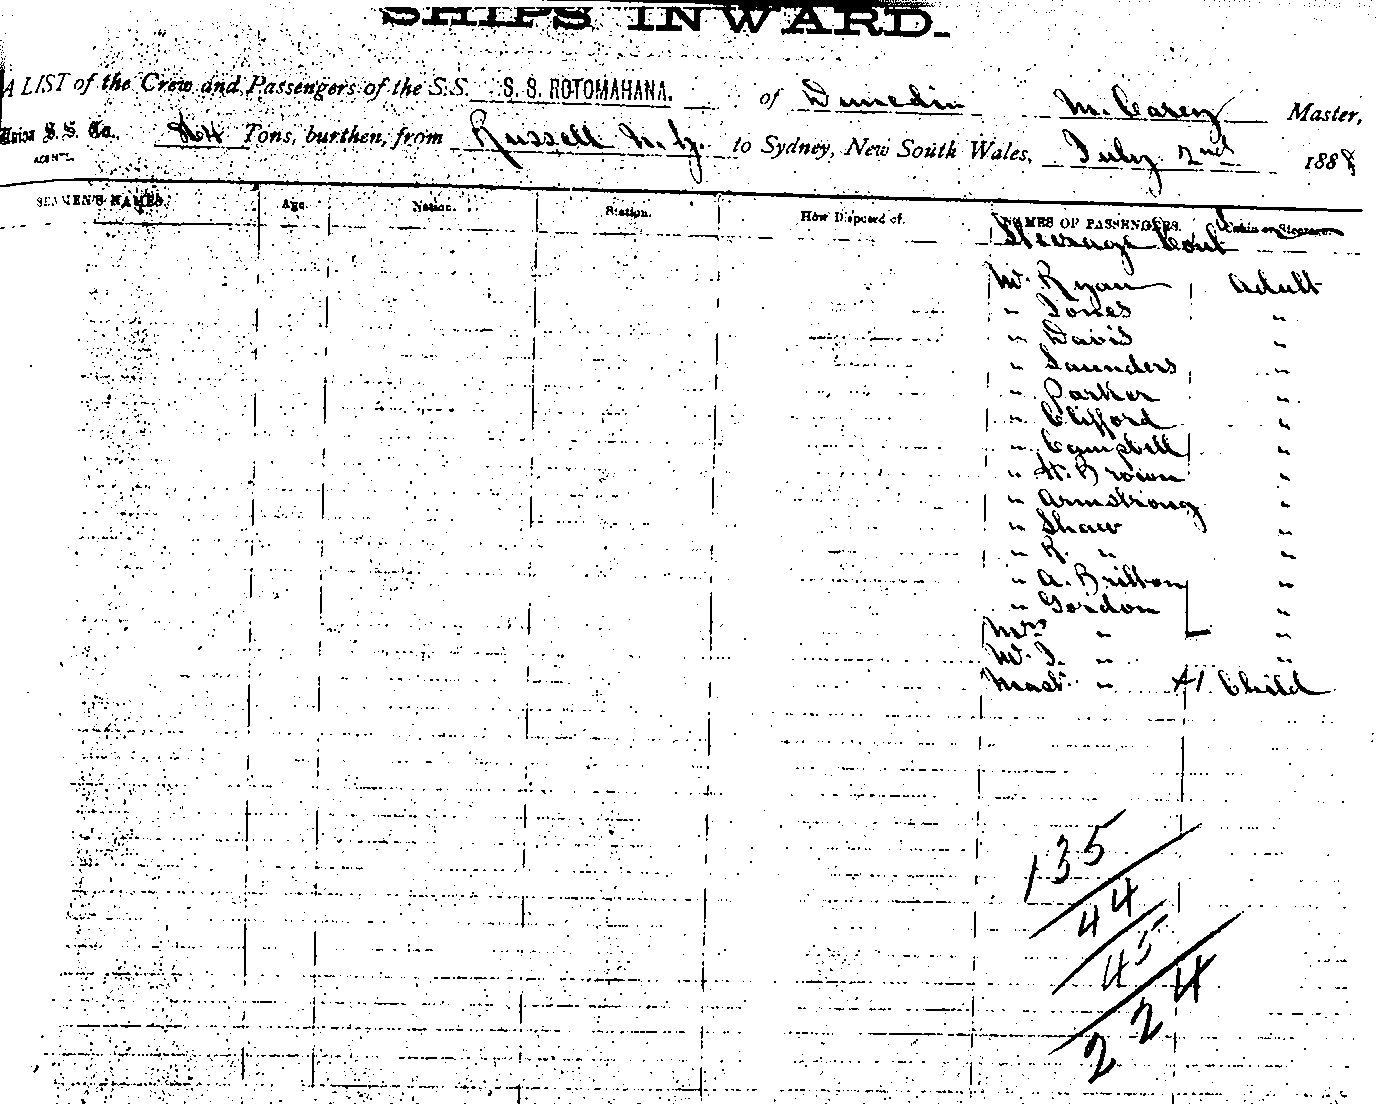 SHIPS INWARD.
A LIST of the Crew and Passengers of the S.S. S. S. ROTOMAHANA. of Dunedin M. Carey Master,
Union S. S. Co. 864 Tons, burthen, from Russell N. Z. to Sydney, New South Wales, July 2nd 1888
AGENTS.
SEAMEN'S NAMES. Age. Nation. Station. How Disposed of. NAMES OF PASSENGERS. Cabin or Steerage
Steerage Cont
Mr. Ryan Adult
" Jones "
" Davis "
" Saunders "
" Parker "
" Clifford "
" Campbell "
" H. Brown "
" Armstrong "
" Shaw "
" R. " "
" A. Britton "
" Gordon "
Mrs " "
W. J. " "
Mast. " 41 Child
135
44
45
224